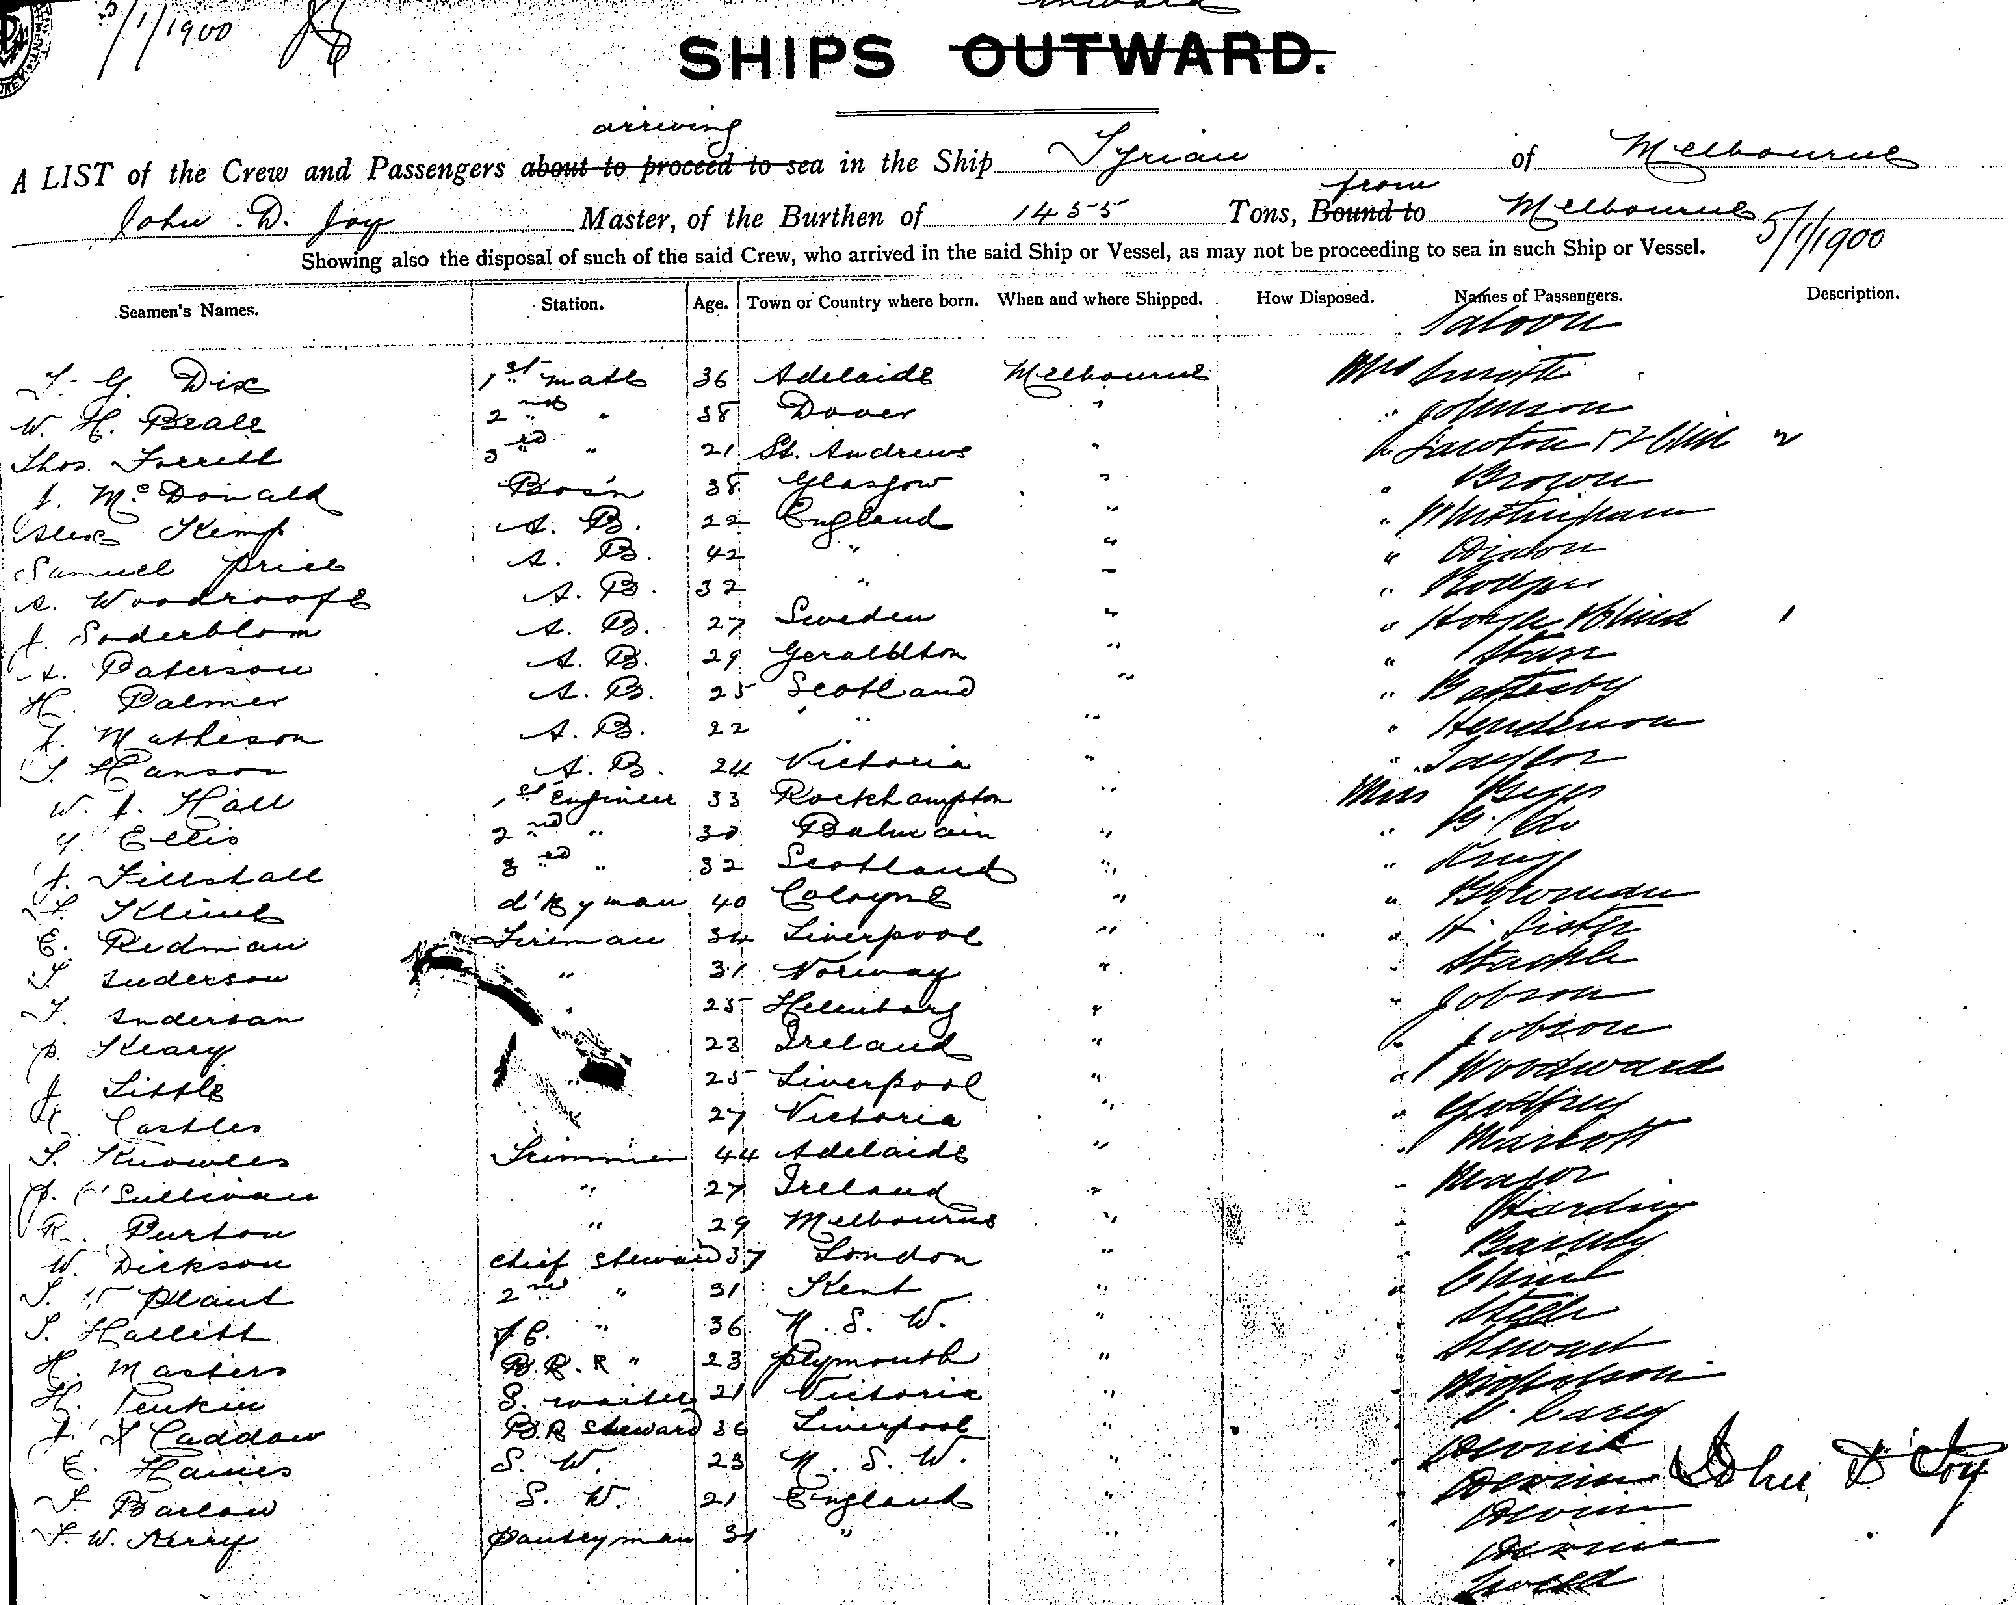 inward
5/1/1900
SHIPS OUTWARD.
arriving
A LIST of the Crew and Passengers about to proceed to sea in the Ship Tyrian of Melbourne
from
John D. Joy Master, of the Burthen of 1455 Tons, Bound to Melbourne 5/1/1900
Showing also the disposal of such of the said Crew, who arrived in the said Ship or Vessel, as may not be proceeding to sea in such Ship or Vessel.
Seamen's Names. Station. Age. Town or Country where born. When and where Shipped. How Disposed. Names of Passengers. Description.
Saloon
T. G. Dix 1st mate 36 Adelaide Melbourne Mrs Smith
W. H. Beale 2nd " 38 Dover " " Johnson
Thos. Forrell 3rd " 21 St. Andrews " " Lawton
J. McDonald Bos'n 38 Glasgow " " Brown
Alex Kemp A. B. 22 England " "
Samuel Price A. B. 42 " " " Dixon
A. Woodroofe A. B. 32 " " " Rodger
J. Soderblom A. B. 27 Sweden " "
A. Paterson A. B. 29 Geraldton " " Starr
H. Palmer A. B. 25 Scotland " " Battersby
J. Matheson A. B. 22 " " " Henderson
T. Hanson A. B. 24 Victoria " " Taylor
W. J. Hall 1st Engineer 33 Rockhampton " Miss Biggs
G. Ellis 2nd " 30 Balmain " " B. do
J. Tillstall 3rd " 32 Scotland " " Krugg
F. Kline d'ky man 40 Cologne " " Bowman
E. Redman Fireman 34 Liverpool " " H. Sister
T Anderson " 31 Norway " " Stackle
T. Anderson " 25 Helenborg " " Jobson
P. Keary 23 Ireland " " Jobson
J. Little " 25 Liverpool " " Woodward
R. Castles 27 Victoria " " Godfrey
T. Knowles Trimmer 44 Adelaide " " Marriott
J. O'Sullivan " 27 Ireland " " Major
R. Purton " 29 Melbourne " " Harding
W. Dickson Chief Steward 37 London "
T. W Plant 2nd " 31 Kent "
S. Hallett F C. " 36 N. S. W. "
H. Masters B. R. R " 23 Plymouth " Stewart
H. Penkin S. waiter 21 Victoria " Nicholson
J. F Caddow B.R Steward 36 Liverpool Carey
E. Haines S. W. 23 N. S. W.
F Barlow S. W. 21 England John D Joy
F. W. Kerry Pantryman 31 "